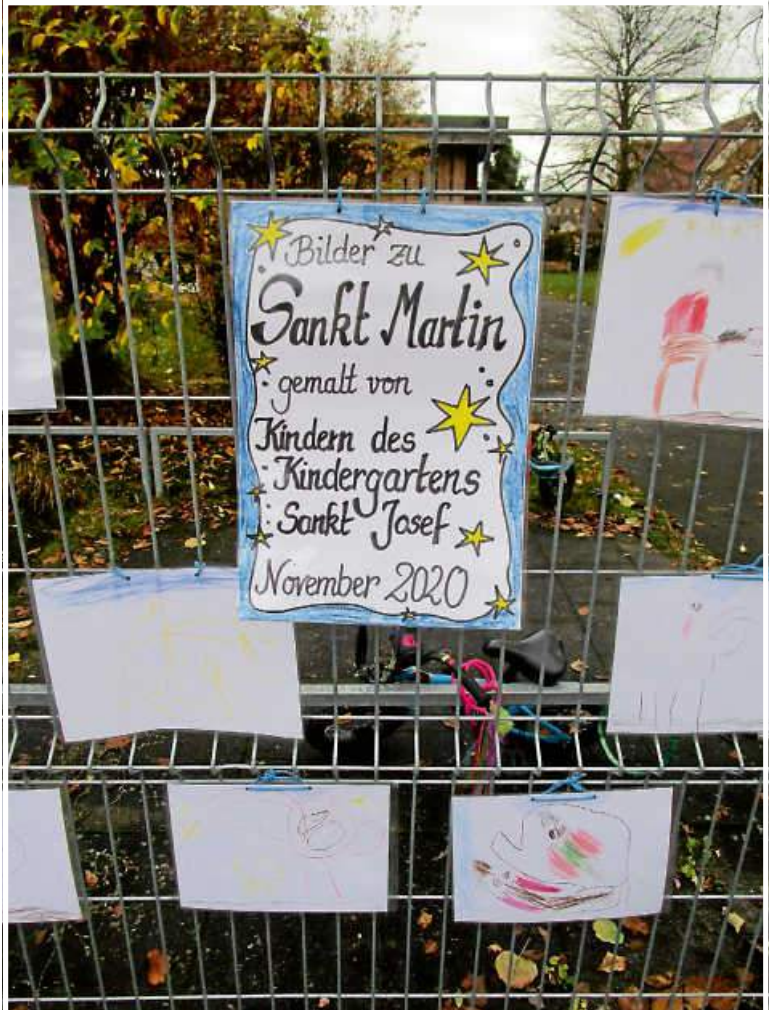 Bilder zu
Sankt Martin
gemalt von
Kindern des
Kindergartens
Sankt Josef
November 2020